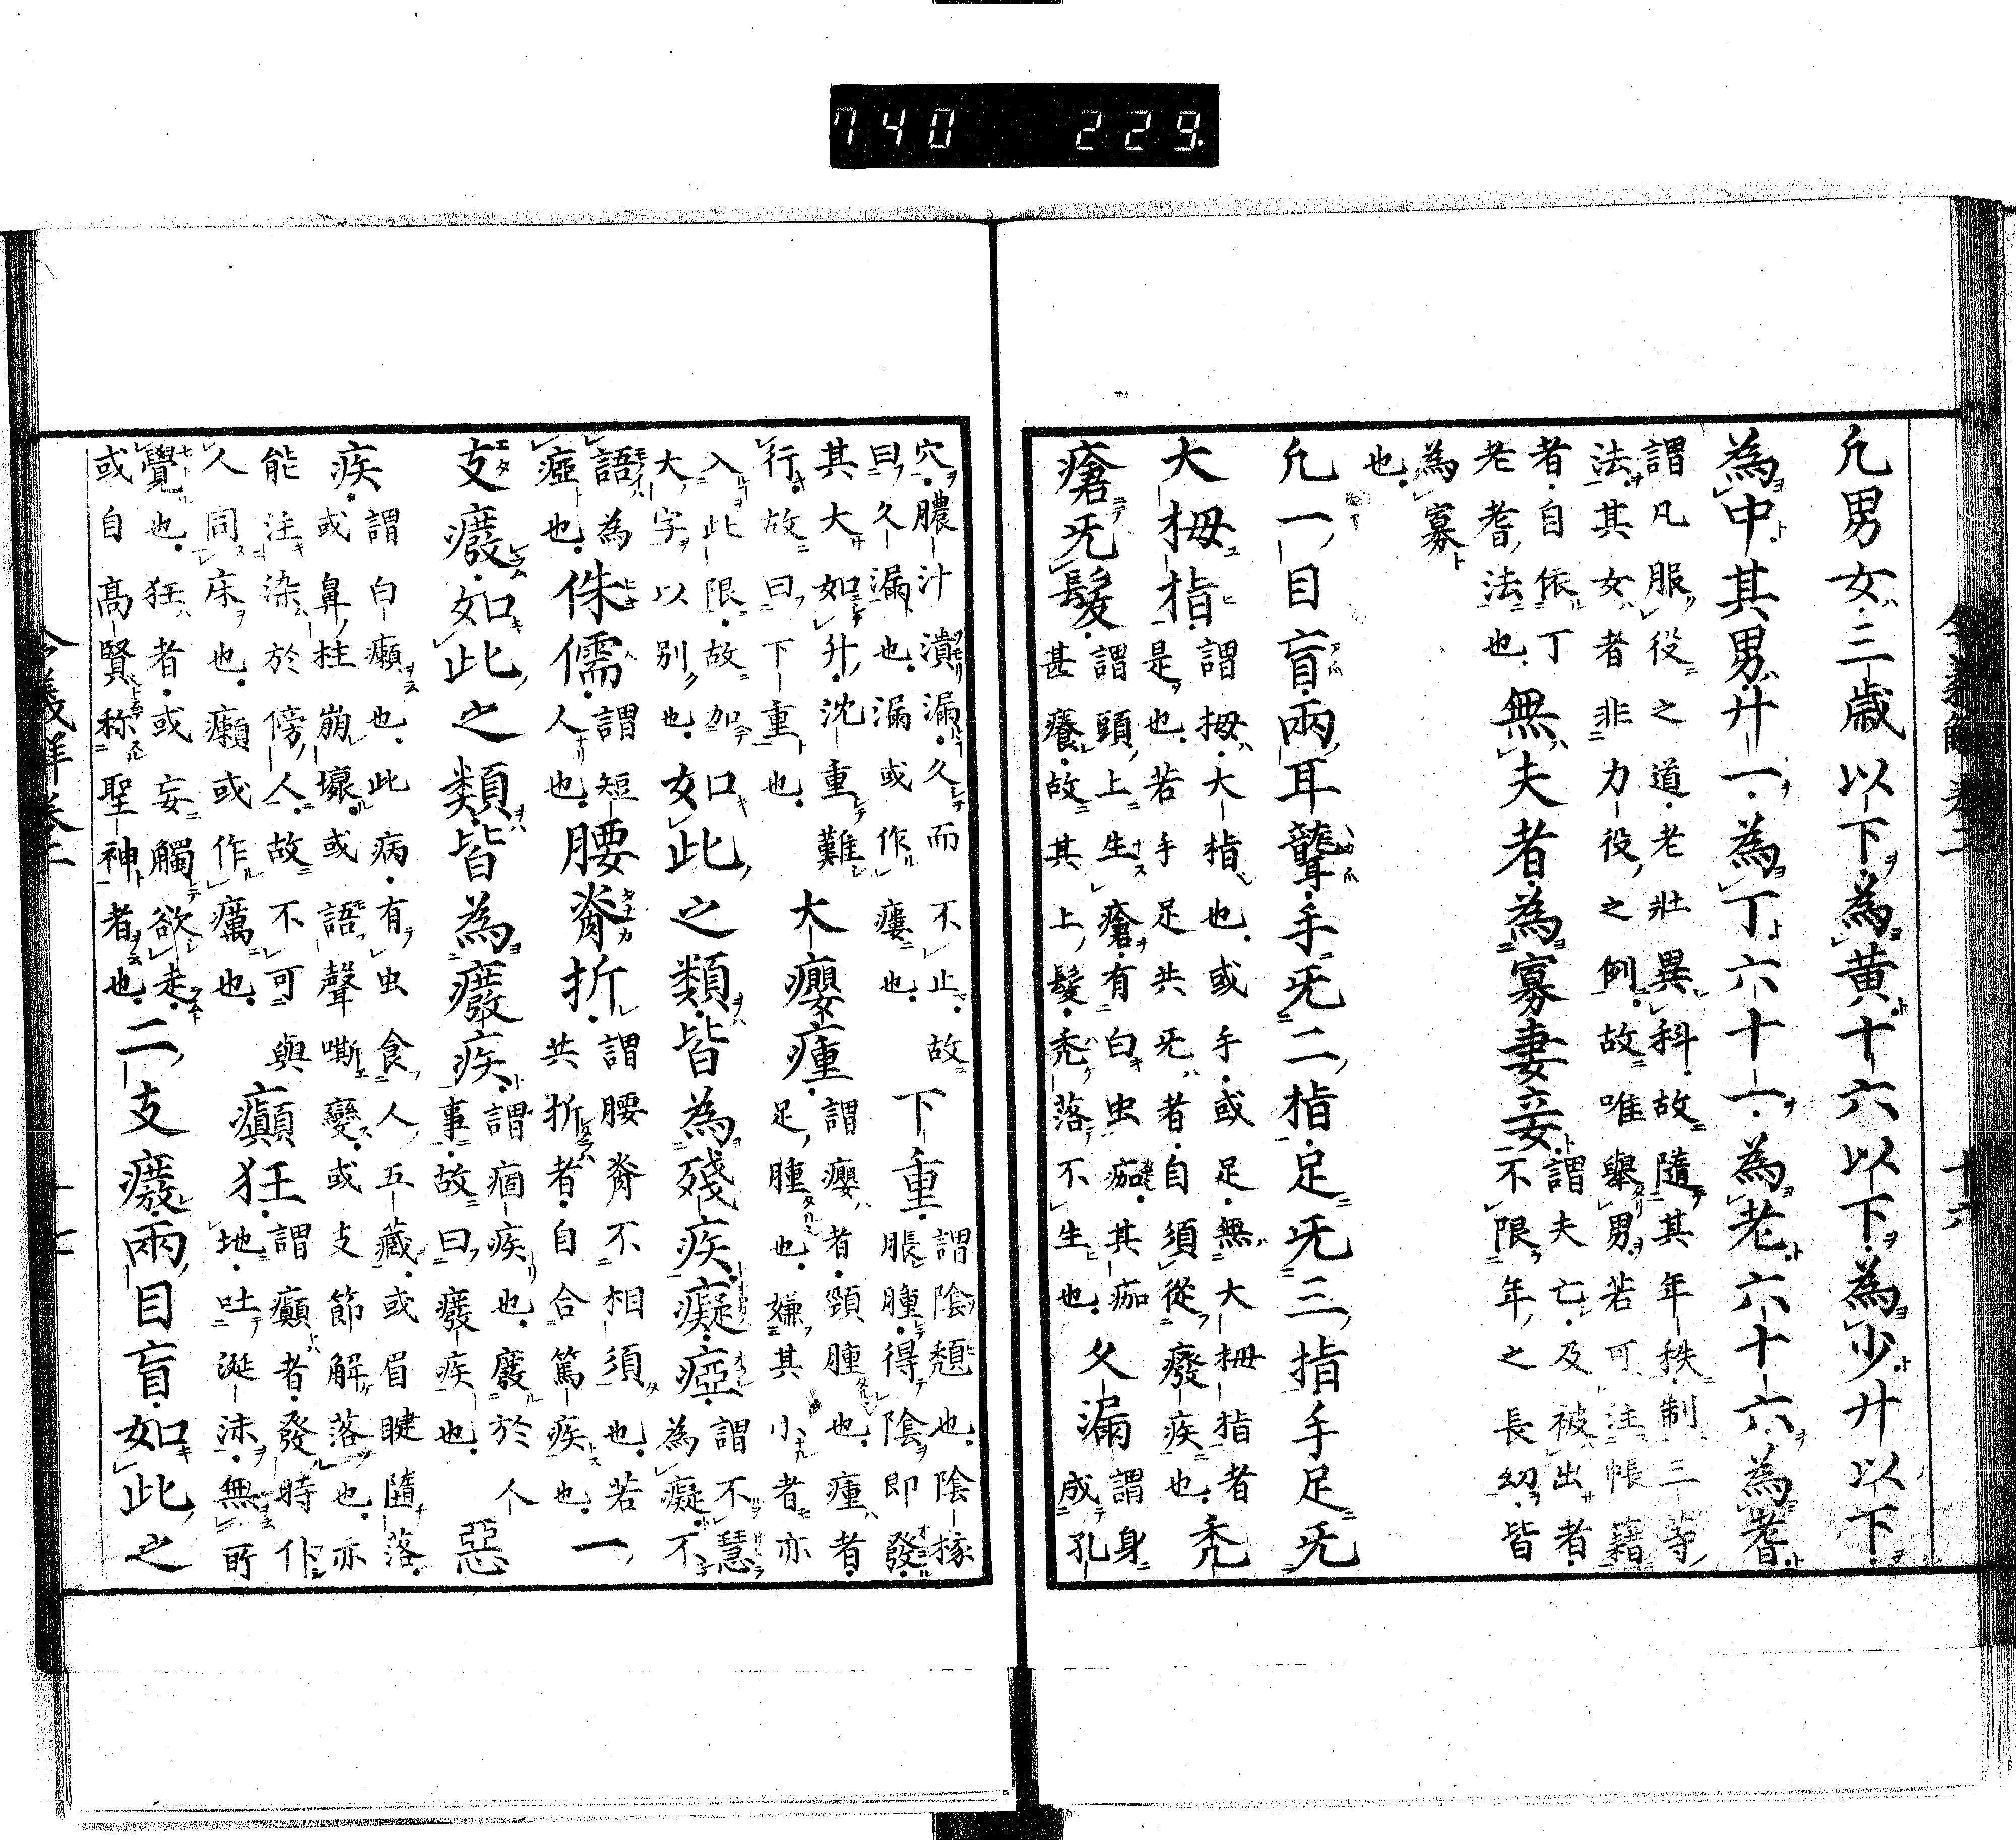 740 229
令義解 卷二 十六
凢男女三歳以下為黄十六以下為少廾以下
為中其男廾一為丁六十一為老六十六為耆
謂凡服役之道老壮異科故隨其年秩制三等
法其女者非力役之例故唯舉男若可注帳籍
者自依丁
老耆法也
無夫者為寡妻妾
謂夫亡及被出者
不限年之長幼皆
為寡
也
凢一目盲兩耳聾手旡二指足旡三指手足旡
大拇指
謂拇大指也或手或足無大拇指者
是也若手足共旡者自須從癈疾也
禿
瘡旡髮
謂頭上生瘡有白虫痂其痂
甚癢故其上髮禿落不生也
久漏
謂身
成孔
穴膿汁潰漏久而不止故
曰久漏也漏或作瘻也
下重
謂陰頹也陰掾
脹腫得陰即發
其大如升沈重難
行故曰下重也
大癭瘇
謂癭者頸腫也瘇者
足腫也嫌其小者亦
入此限故加
大字以別也
如此之類皆為殘疾癡瘂
謂不慧
為癡不
語為
瘂也
侏儒
謂短
人也
腰脊折
謂腰脊不相須也若
共折者自合篤疾也
一
支癈如此之類皆為癈疾
謂痼疾也癈於人
事故曰癈疾也
惡
疾
謂白癩也此病有虫食人五藏或眉睫隨落
或鼻柱崩壞或語聲嘶變或支節解落也亦
能注染於傍人故不可與
人同床也癩或作癘也
癲狂
謂癲者發時仆
地吐涎沫無所
覺也狂者或妄觸欲走
或自高賢称聖神者也
二支癈兩目盲如此之
令義解 卷二 十七